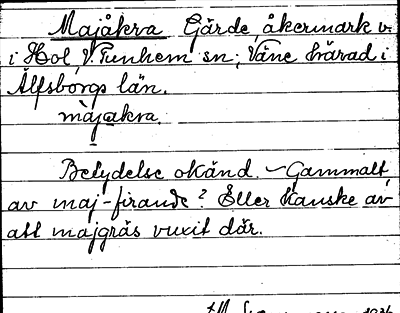 Majåkra Gärde, åkermark v.
i Hol, V. Tunhem sn; Väne härad i
Älfsborgs län.
màjakra.
Betydelse okänd. – Gammalt
av maj-firande? Eller kanske av
att majgräs vuxit där.